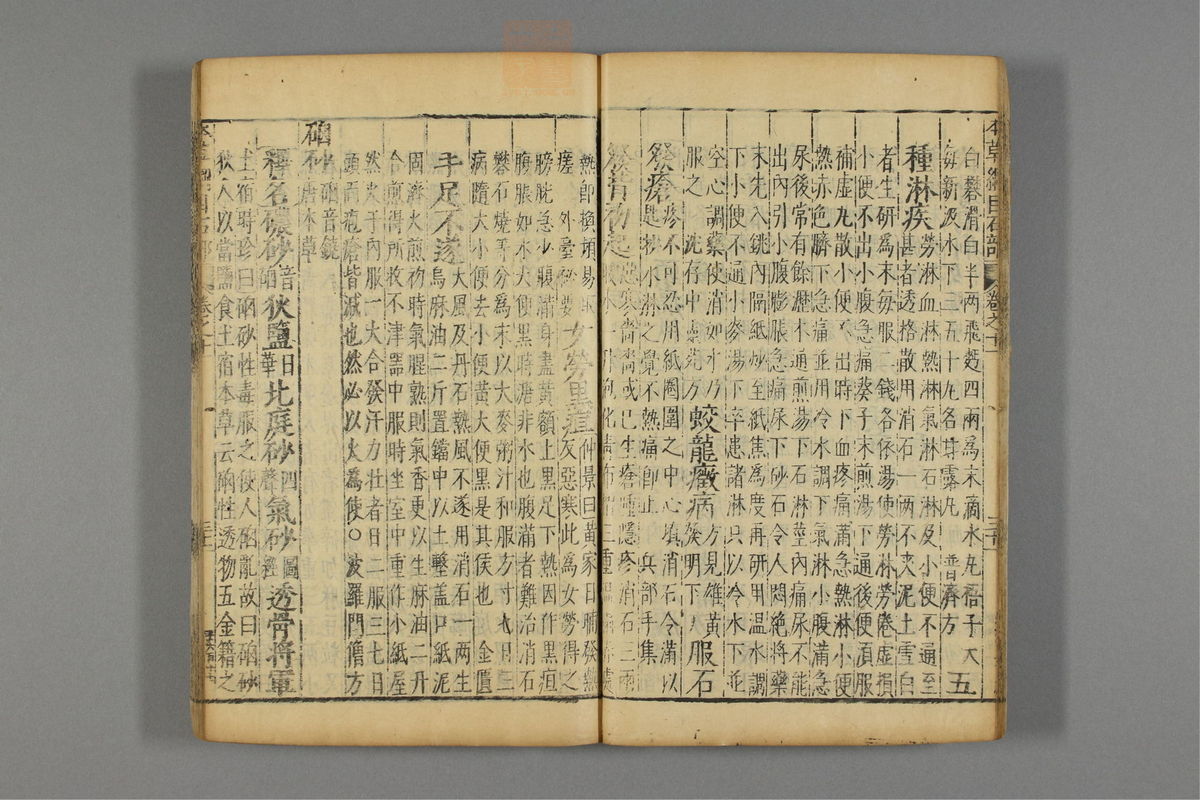 本草綱目石部
白礬滑白半兩飛麪四兩為末滴水丸梧子大
每新汲水下三五十九名甘露丸 普濟方 五
種淋疾 勞淋血淋熱淋氣淋石淋及小便不通至
甚者透格散用消石一兩不夾泥土雪白
者生研為末每服二錢各依湯使勞淋勞倦虛損
小便不出小腹急痛葵子末煎湯下通後便須服
補虛丸散小便不出時下血疼痛滿急熱淋小便
熱赤色臍下急痛並用冷水調下氣淋小腹滿急
尿後常有餘瀝木通煎湯下石淋莖內痛尿不能
出內引小腹膨脹急痛尿下砂石令人悶絕將藥
末先入銚內隔紙炒至紙焦為度再研用溫水調
下小便不通小麥湯下卒患諸淋只以冷水下並
空心調藥使消如水乃
服之 沈存中靈苑方 蛟龍癥病 方見雄黃 服石
發瘡 疼不可忍用紙圈圍之中心填消石令滿以
匙抄水淋之覺不熱痛即止 兵部手集
發背初起 惡寒嗇嗇或已生瘡腫癮疹消石三兩
熱即換頻易
瘥 外臺秘要 女勞黑疸 仲景曰黃家日晡發熱
反惡寒此為女勞得之
膀胱急少腹滿身盡黃額上黑足下熱因作黑疸
腹脹如水大便黑時溏非水也腹滿者難治消石
礬石燒等分為末以大麥粥汁和服方寸匕日三
病隨大小便去小便黃大便黑是其候也 金匱
手足不遂 大風及丹石熱風不遂用消石一兩生
烏麻油二斤置鐺中以土墼蓋口紙泥
固濟火煎初時氣腥熟則氣香更以生麻油二升
合煎得所收不津器中服時坐室中重作小紙屋
然火于內服一大合發汗力壯者日二服三七日
頭面疱瘡皆減也然必以火為使○波羅門僧方
硇砂 硇音鐃
唐本草
釋名 䃃砂 音硇 狄鹽 日華 北庭砂 四聲 氣砂 圖經 透骨將軍
土宿 時珍曰硇砂性毒服之使人硇亂故曰硇砂
狄人以當鹽食土宿本草云硇性透物五金籍之